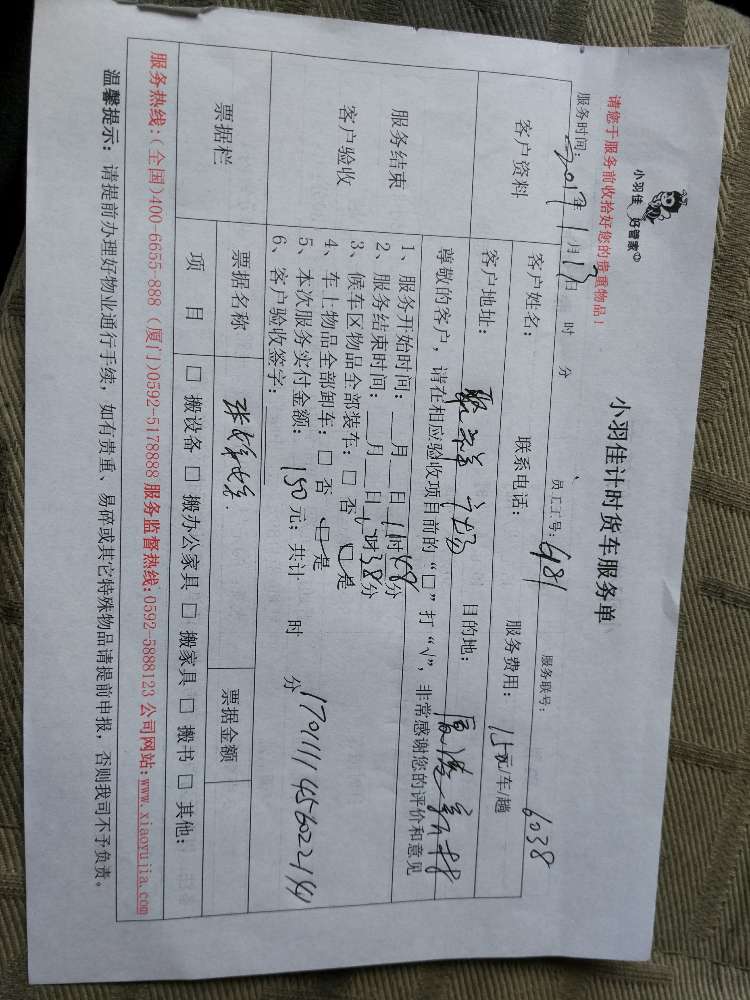 小羽佳 好管家
小羽佳计时货车服务单
请您于服务前收拾好您的贵重物品！
服务时间：2017年1月13日 时 分 员工工号：481 服务联号：6038
客户资料
客户姓名： 联系电话： 服务费用：150元/车/趟
客户地址： 目的地：
服务结束
客户验收
尊敬的客户，请在相应验收项目前的“□”打“√”，非常感谢您的评价和意见
1、服务开始时间：__月__日 时58分
2、服务结束时间：__月__日 时38分
3、候车区物品全部装车：□ 否 □是
4、车上物品全部卸车：□ 否 □是
5、本次服务实付金额：150元；共计 时 分
6、客户验收签字：
票据栏
票据名称 票据金额
项 目 □ 搬设备 □ 搬办公家具 □ 搬家具 □ 搬书 □ 其他：
服务热线：(全国)400-6655-888 (厦门)0592-5178888 服务监督热线：0592-5888123 公司网站：www.xiaoyujia.com
温馨提示：请提前办理好物业通行手续，如有贵重、易碎或其它特殊物品请提前申报，否则我司不予负责。